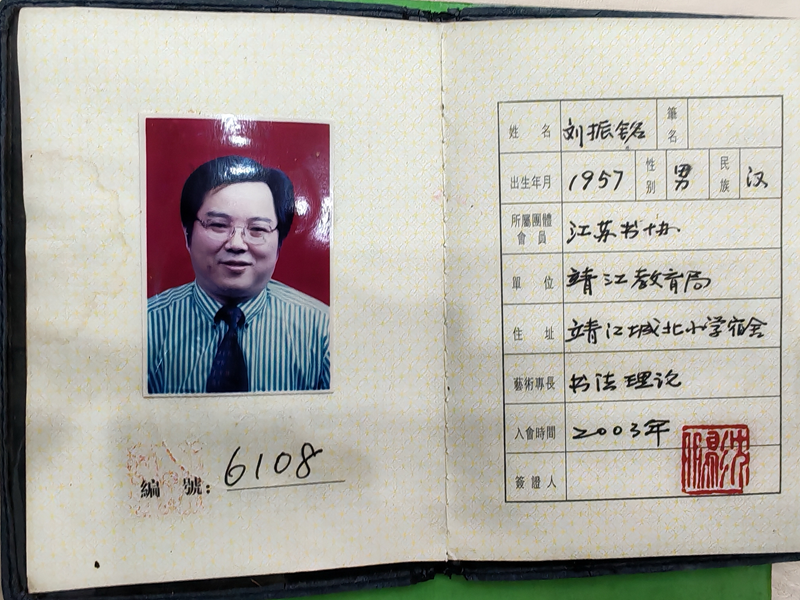 編 號: 6108
姓 名 刘振铭 筆名
出生年月 1957 性别 男 民族 汉
所屬團體會員 江苏书协
單 位 靖江教育局
住 址 靖江城北小学宿舍
藝術專長 书法理论
入會時間 2003年
簽證人